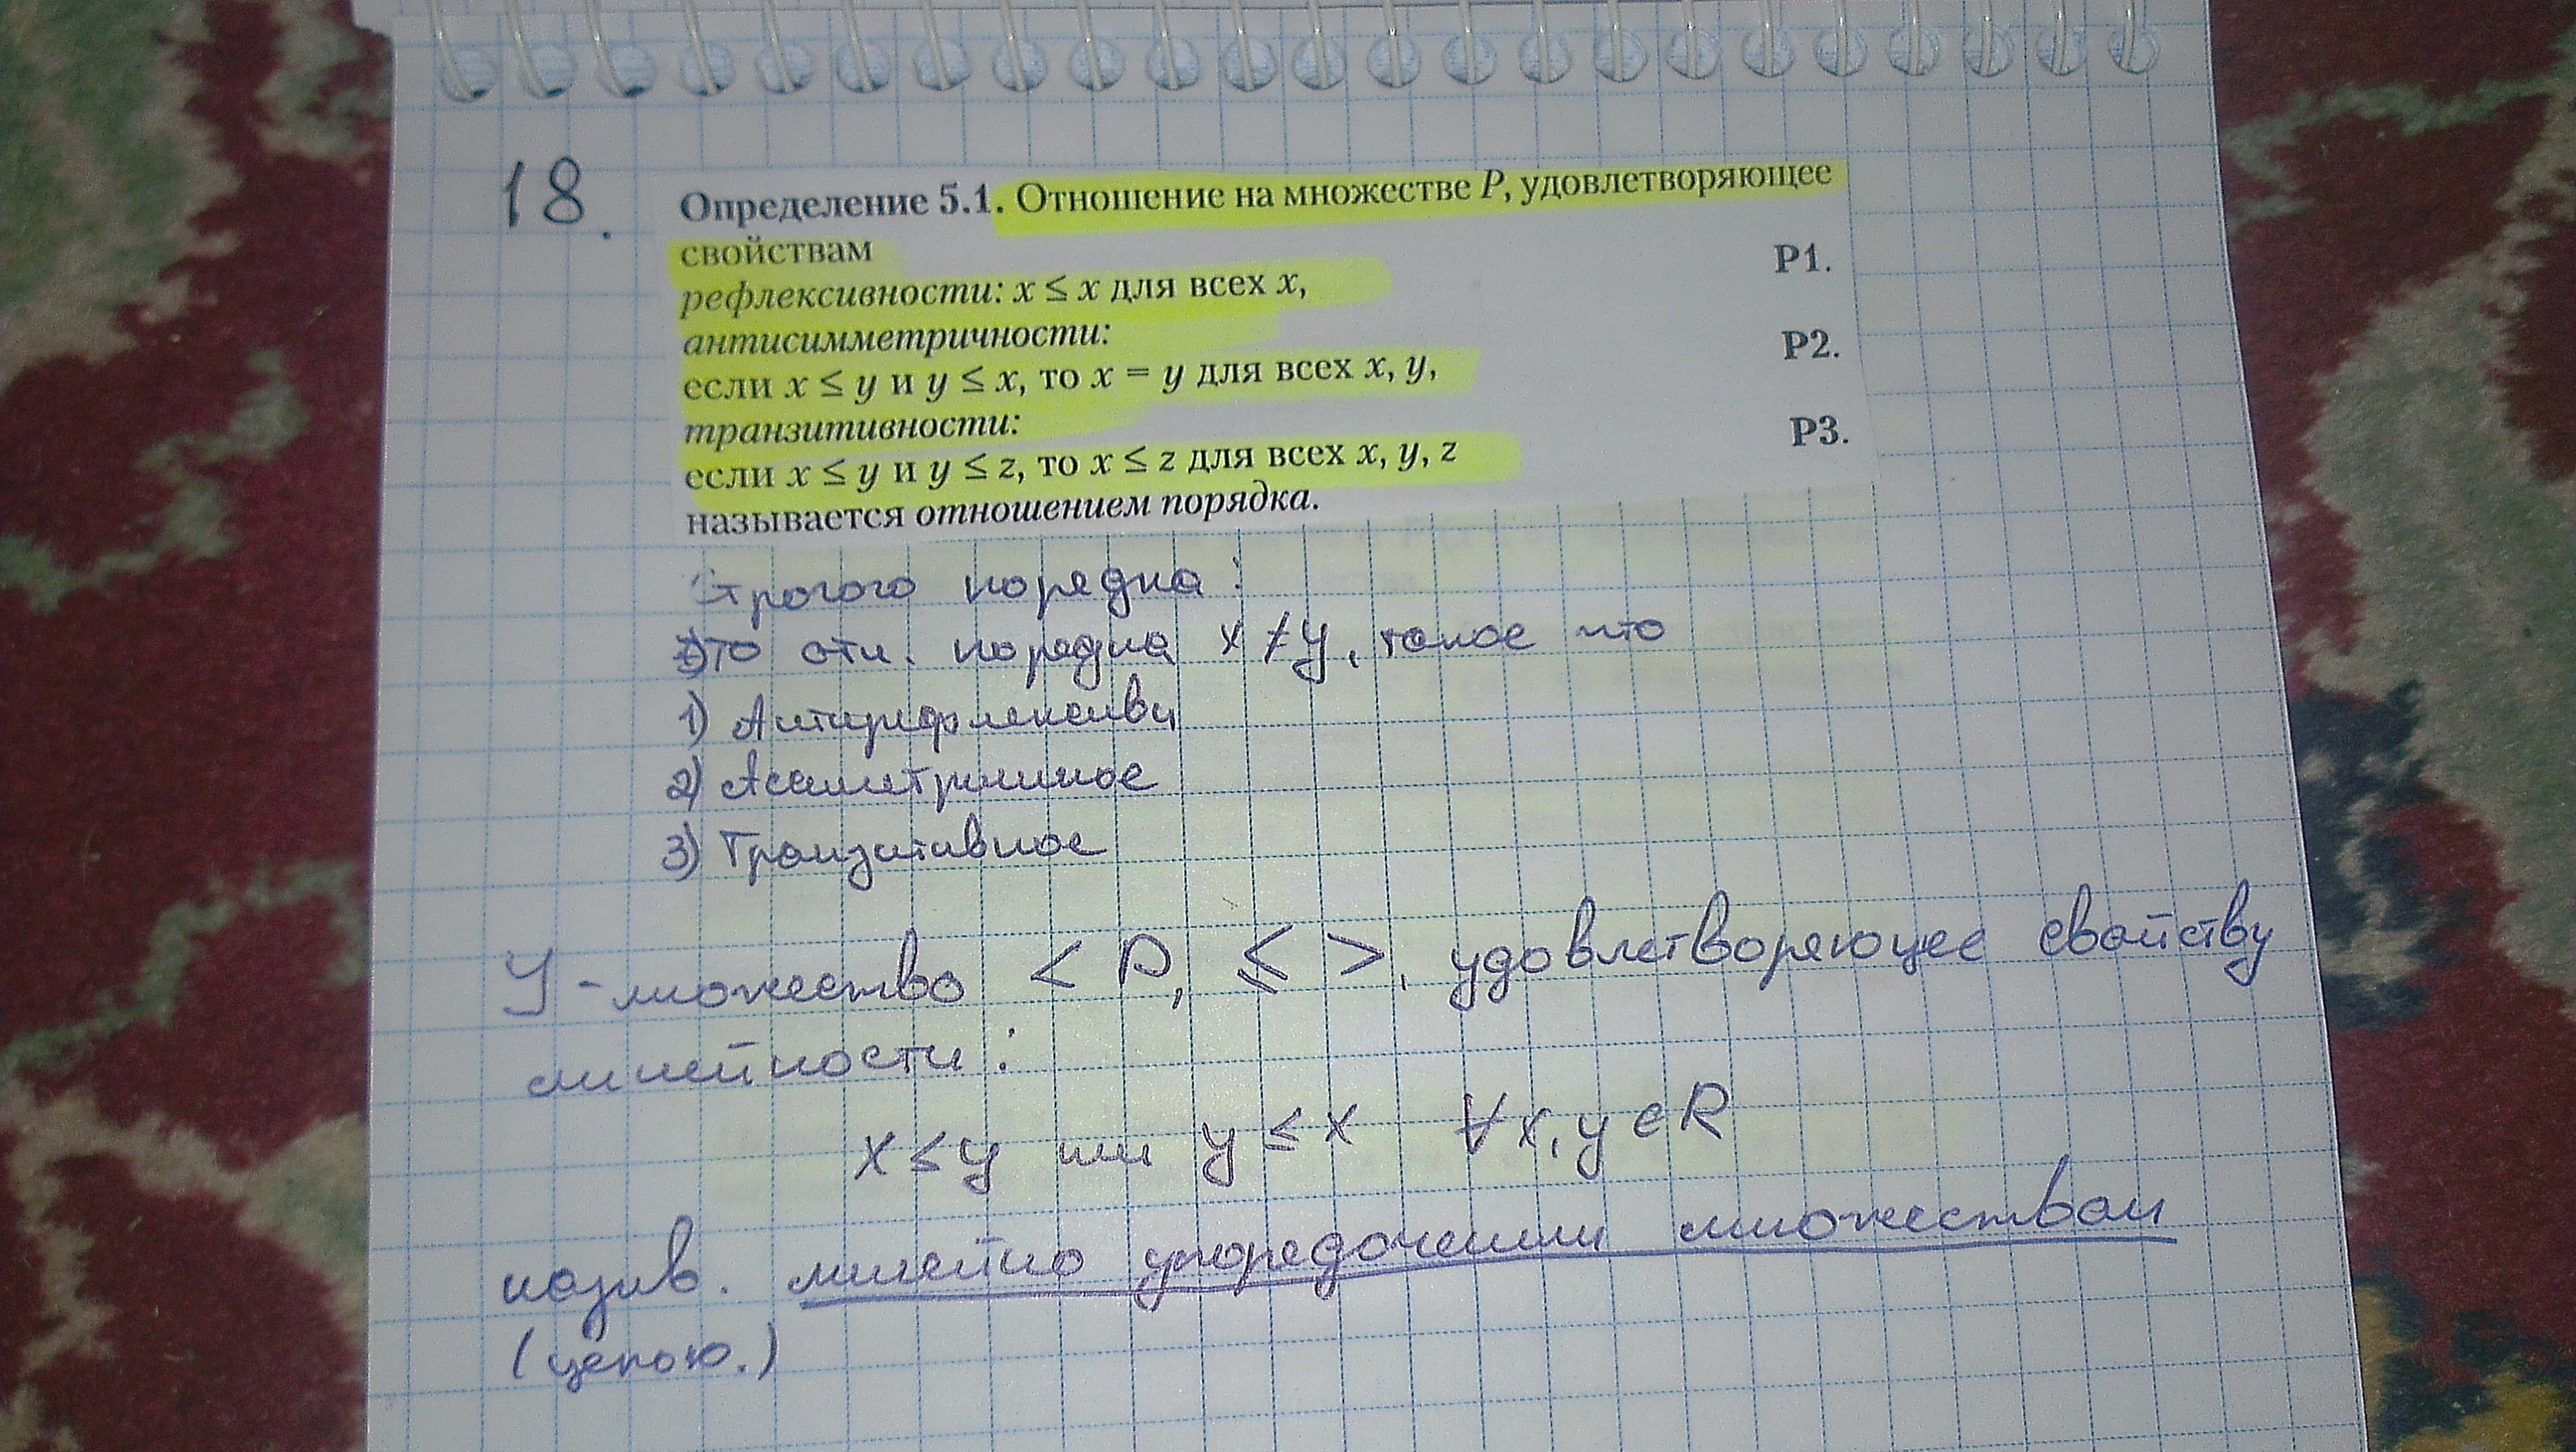 18.
Определение 5.1. Отношение на множестве P, удовлетворяющее
свойствам P1.
рефлексивности: x ≤ x для всех x,
антисимметричности: P2.
если x ≤ y и y ≤ x, то x = y для всех x, y,
транзитивности: P3.
если x ≤ y и y ≤ z, то x ≤ z для всех x, y, z
называется отношением порядка.
Строгого порядка:
Это отн. порядка x ≠ y, такое что
1) Антирефлексивн
2) Ассиметричное
3) Транзитивное
У-множество < P, ≤ >, удовлетворяющее свойству
линейности:
x ≤ y или y ≤ x ∀x, y ∈ R
назыв. линейно упорядоченным множеством
(цепою.)